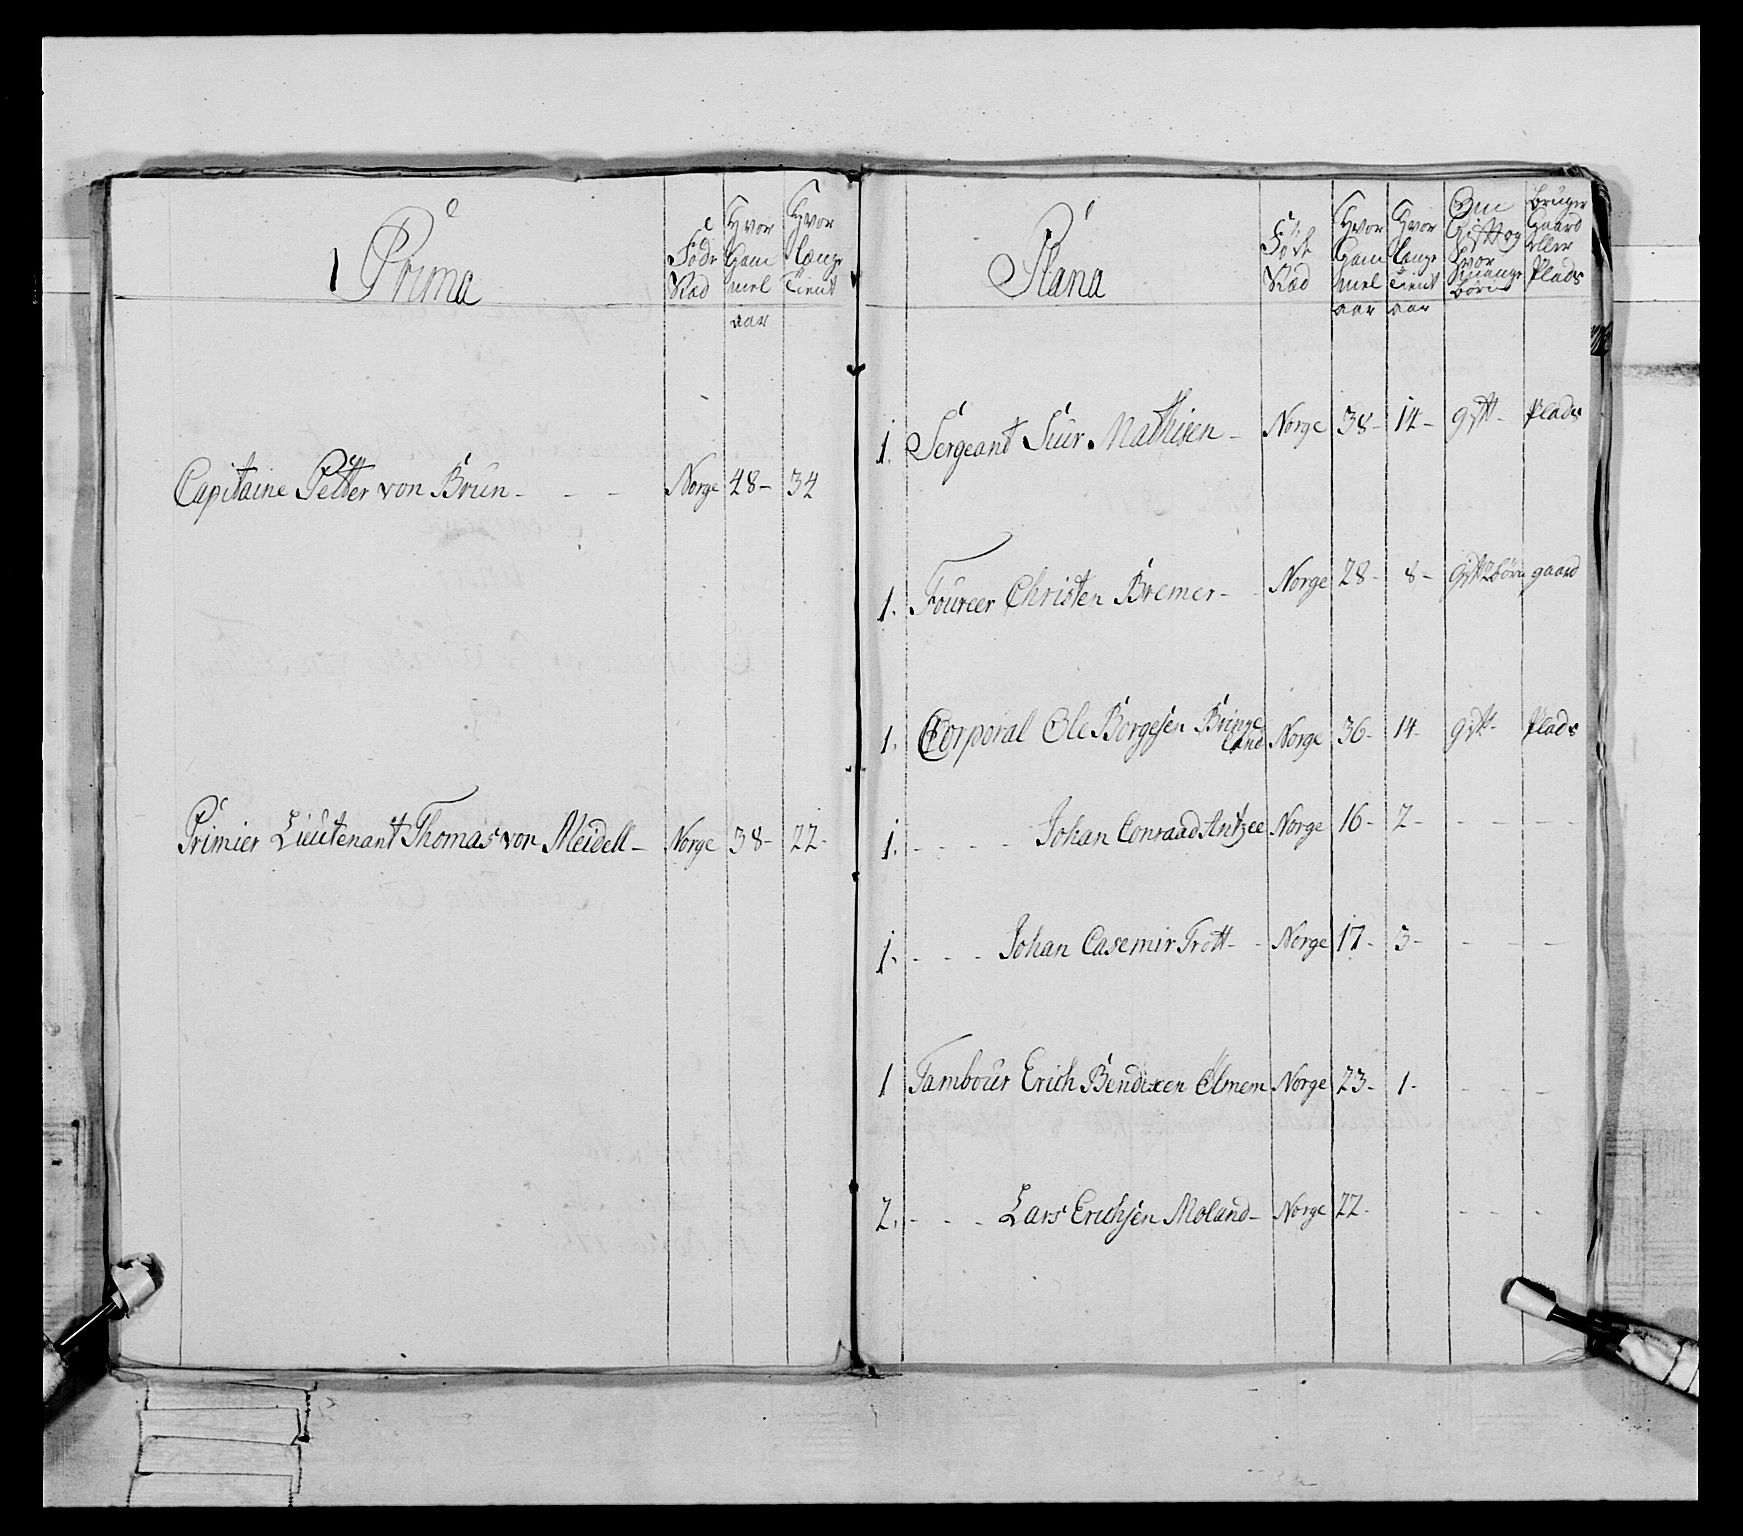 Prima
Føde Stæd
Hvor Gammel aar
Hvor længe Tient
Capitaine Petter von Brun - - - Norge 48- 34
Primier Lieutenant Thomas von Meidell- Norge 38- 22-
Plana
Føde Stæd
Hvor Gammel aar
Hvor længe Tient aar
Om Gift og Hvor Mange børn
bruger Gaard eller Plads
1. Sergeant Siur Mathisen- Norge 38- 14- gift- Plads
1. Foureer Christen Bremer- - Norge 28- 8- Gift 2 børn gaard
1. Corporal Ole Borgesen Bringe Norge 36- 14- gift- Plads
land
1. - - - - Johan Conraad Antzee Norge 16- 2- - - - -
1. - - - Johan Casemir Trott- - Norge 17- 3- - - -
1 Tambour Erich Bendixen Ølmem Norge 23- 1- - - -
2. - - - Lars Erichsen Moland- Norge 22- - - -